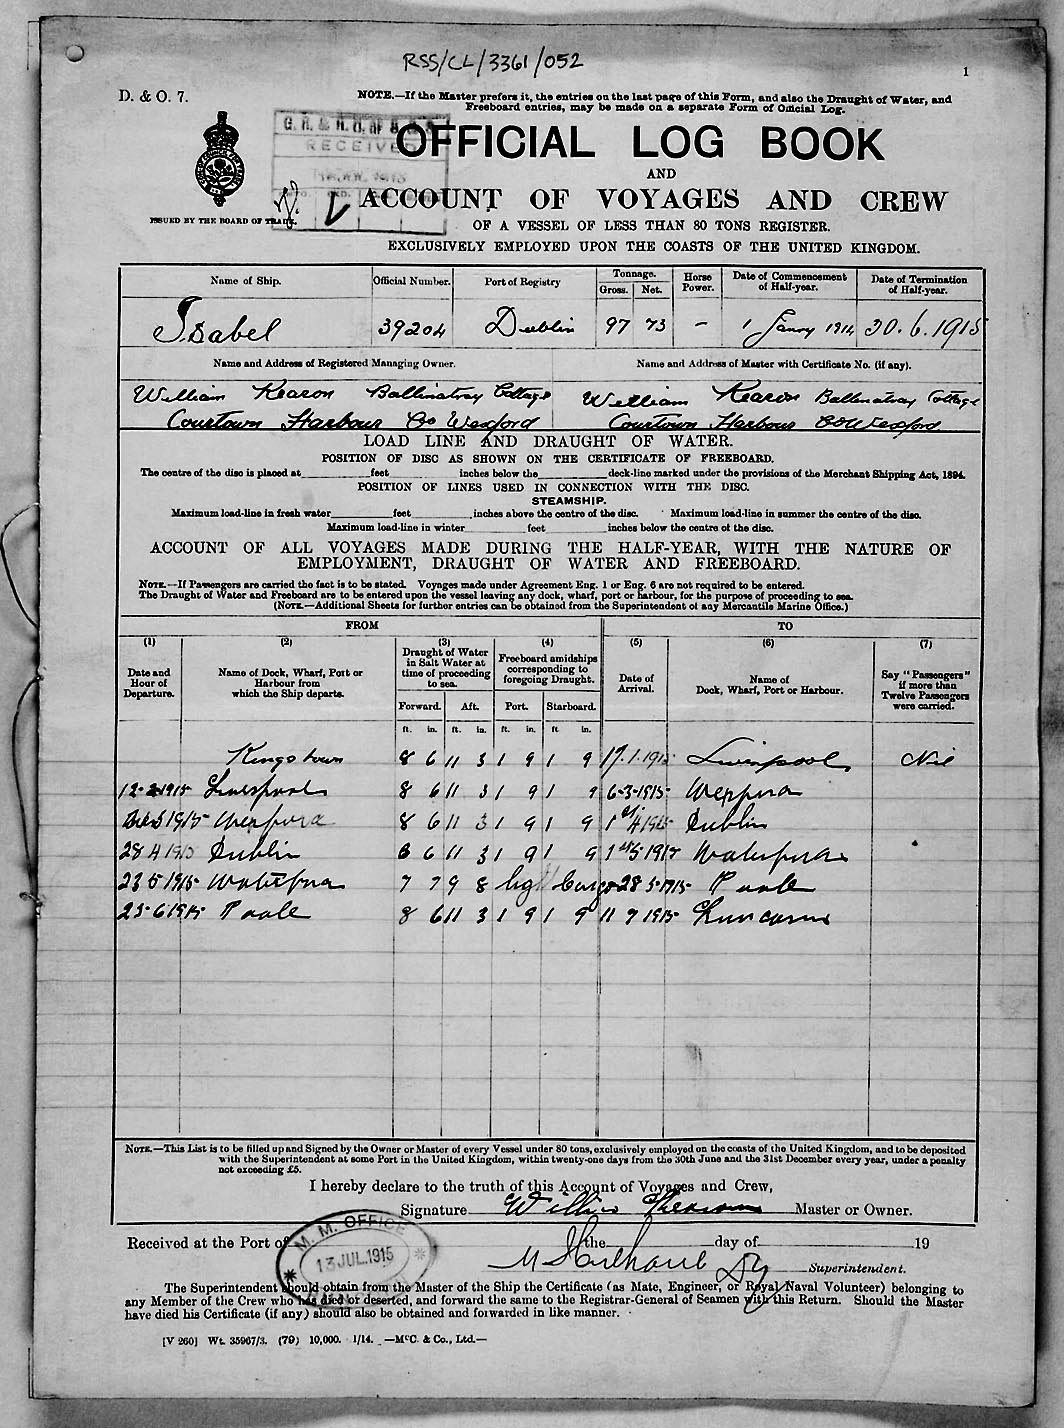 RSS/CL/3361/052
1
D. & O. 7.
NOTE.—If the Master prefers it, the entries on the last page of this Form, and also the Draught of Water, and
Freeboard entries, may be made on a separate Form of Official Log.
RECEIVED
OFFICIAL LOG BOOK
AND
ACCOUNT OF VOYAGES AND CREW
ISSUED BY THE BOARD OF TRADE.
OF A VESSEL OF LESS THAN 80 TONS REGISTER.
EXCLUSIVELY EMPLOYED UPON THE COASTS OF THE UNITED KINGDOM.
Name of Ship. Official Number. Port of Registry Tonnage. Gross. Net. Horse Power. Date of Commencement of Half-year. Date of Termination of Half-year.
Isabel 39204 Dublin 97 73 – 1 Janry 1914 30.6.1915
Name and Address of Registered Managing Owner. Name and Address of Master with Certificate No. (if any).
William Kearon Ballinatray Cottage William Kearon Ballinatray Cottage
Courtown Harbour Co Wexford Courtown Harbour Co Wexford
LOAD LINE AND DRAUGHT OF WATER.
POSITION OF DISC AS SHOWN ON THE CERTIFICATE OF FREEBOARD.
The centre of the disc is placed at feet inches below the deck-line marked under the provisions of the Merchant Shipping Act, 1894.
POSITION OF LINES USED IN CONNECTION WITH THE DISC.
STEAMSHIP.
Maximum load-line in fresh water feet inches above the centre of the disc. Maximum load-line in summer the centre of the disc.
Maximum load-line in winter feet inches below the centre of the disc.
ACCOUNT OF ALL VOYAGES MADE DURING THE HALF-YEAR, WITH THE NATURE OF
EMPLOYMENT, DRAUGHT OF WATER AND FREEBOARD.
NOTE.—If Passengers are carried the fact is to be stated. Voyages made under Agreement Eng. 1 or Eng. 6 are not required to be entered.
The Draught of Water and Freeboard are to be entered upon the vessel leaving any dock, wharf, port or harbour, for the purpose of proceeding to sea.
(NOTE.—Additional Sheets for further entries can be obtained from the Superintendent of any Mercantile Marine Office.)
FROM TO
(1) (2) (3) (4) (5) (6) (7)
Date and Hour of Departure. Name of Dock, Wharf, Port or Harbour from which the Ship departs. Draught of Water in Salt Water at time of proceeding to sea. Freeboard amidships corresponding to foregoing Draught. Date of Arrival. Name of Dock, Wharf, Port or Harbour. Say "Passengers" if more than Twelve Passengers were carried.
Forward. Aft. Port. Starboard.
ft. in. ft. in. ft. in. ft in.
Kingstown 8 6 11 3 1 9 1 9 17.1.1915 Liverpool Nil
12-2-1915 Liverpool 8 6 11 3 1 9 1 9 6-3-1915 Wexford
1915 Wexford 8 6 11 3 1 9 1 9 1915 Dublin
28 4 1915 Dublin 8 6 11 3 1 9 1 9 1915 Waterford
23 5 1915 Waterford 7 7 9 8 light Cargo 28 5-1915 Poole
25-6 1915 Poole 8 6 11 3 1 9 1 9 11 7 1915 Runcorn
NOTE.—This List is to be filled up and Signed by the Owner or Master of every Vessel under 80 tons, exclusively employed on the coasts of the United Kingdom, and to be deposited
with the Superintendent at some Port in the United Kingdom, within twenty-one days from the 30th June and the 31st December every year, under a penalty
not exceeding £5.
I hereby declare to the truth of this Account of Voyages and Crew,
Signature William Kearon Master or Owner.
Received at the Port of the day of 19
M. M. OFFICE
13 JUL.1915
Superintendent.
The Superintendent should obtain from the Master of the Ship the Certificate (as Mate, Engineer, or Royal Naval Volunteer) belonging to
any Member of the Crew who has died or deserted, and forward the same to the Registrar-General of Seamen with this Return. Should the Master
have died his Certificate (if any) should also be obtained and forwarded in like manner.
[V 260] Wt. 35967/3. (79) 10,000. 1/14. —McC. & Co., Ltd.—